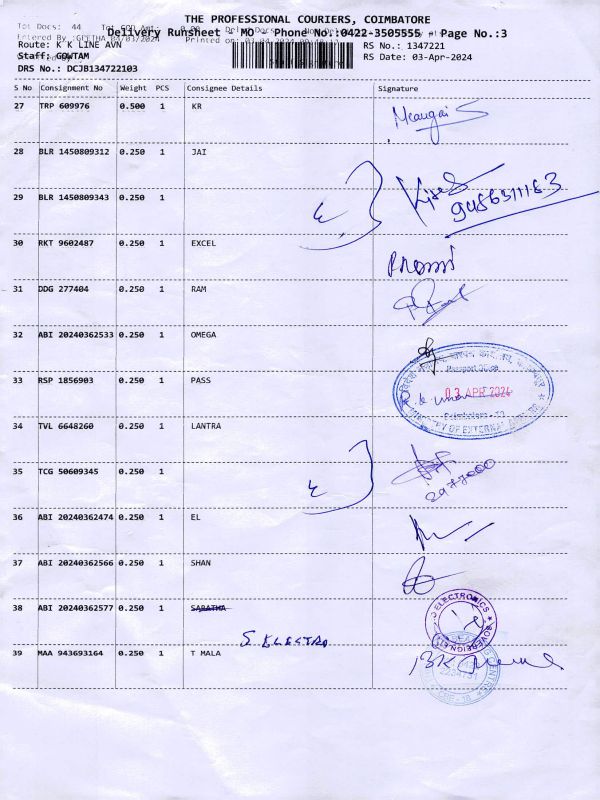 THE PROFESSIONAL COURIERS, COIMBATORE
Tot Docs: 44
Delivery Runsheet - MO - Phone No :0422-3505555 Page No.:3
Route: K K LINE AVN
RS No.: 1347221
Staff: GOWTAM
RS Date: 03-Apr-2024
DRS No.: DCJB134722103
S No Consignment No Weight PCS Consignee Details Signature
27 TRP 609976 0.500 1 KR
28 BLR 1450809312 0.250 1 JAI
29 BLR 1450809343 0.250 1
9486311183
30 RKT 9602487 0.250 1 EXCEL
31 DDG 277404 0.250 1 RAM
32 ABI 20240362533 0.250 1 OMEGA
Passport Office
33 RSP 1856903 0.250 1 PASS
03 APR 2024
MINISTRY OF EXTERNAL
34 TVL 6648260 0.250 1 LANTRA
35 TCG 50609345 0.250 1
2977000
36 ABI 20240362474 0.250 1 EL
37 ABI 20240362566 0.250 1 SHAN
38 ABI 20240362577 0.250 1 SARATHA
ELECTRONICS
SOVEREIGN
S ELECTRO
39 MAA 943693164 0.250 1 T MALA